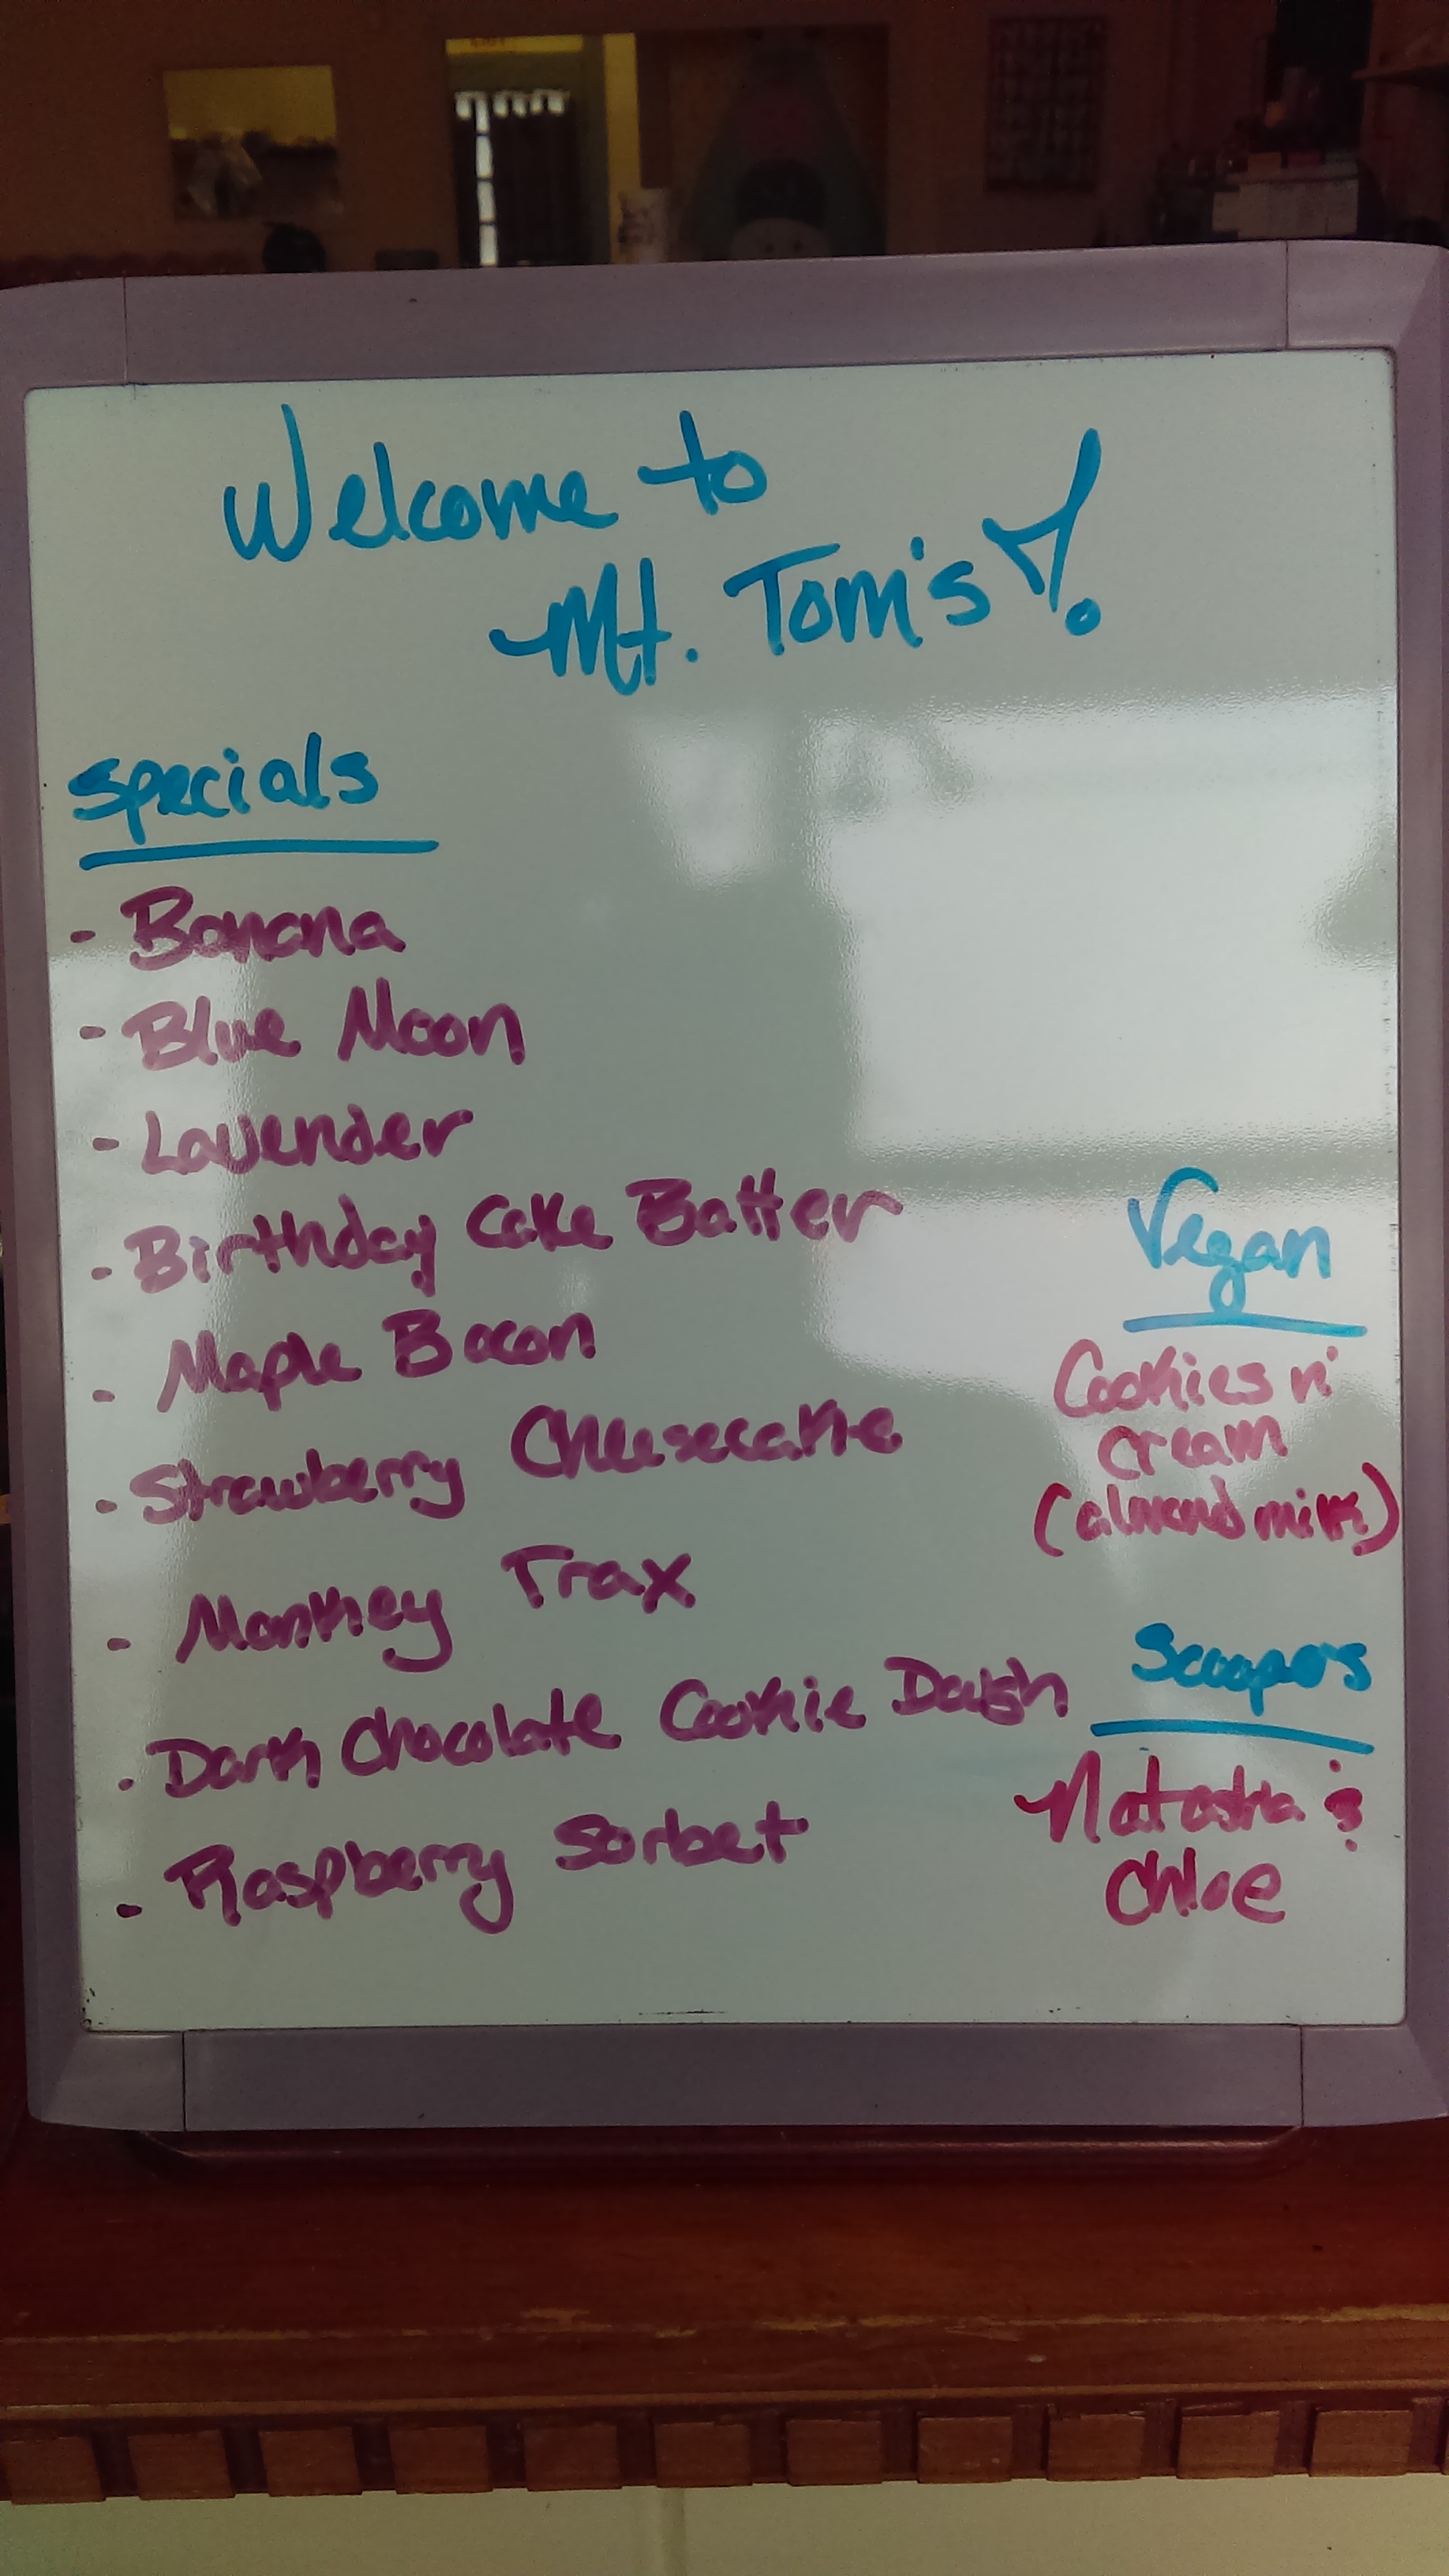 Welcome to
Mt. Tom's!
Specials
- Banana
- Blue Moon
- Lavender
- Birthday Cake Batter
- Maple Bacon
- Strawberry Cheesecake
- Monkey Trax
- Dark Chocolate Cookie Dough
- Raspberry Sorbet
Vegan
Cookies n'
Cream
(almond milk)
Scoopers
Natasha &
Chloe